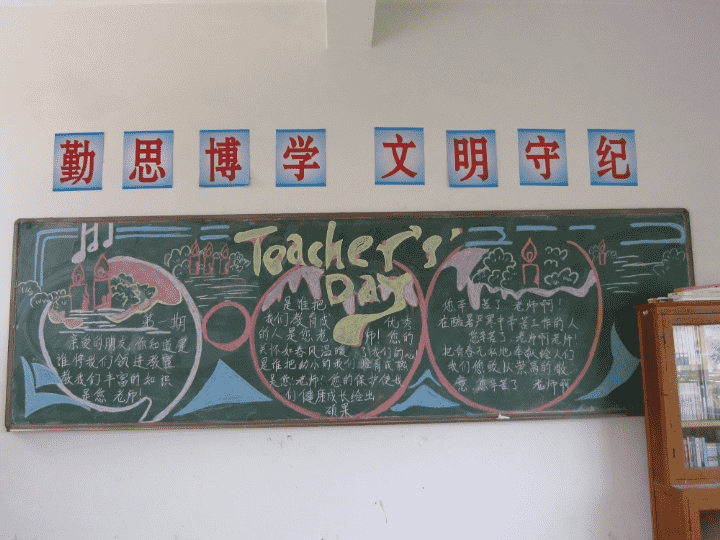 勤思博学 文明守纪
Teachers'
Day
亲爱的朋友 你知道是
谁将我们领进教室
教我们丰富的知识
是您 老师!
是谁把
我们教育成 优秀
的人是您老师!您的
关怀如春风温暖了我们的心
是谁把幼小的我们培育成熟
是您!老师!您的保护使我
们健康成长绘出
硕果
您辛苦了 老师啊!
在酷暑严寒中辛苦工作的人
您辛苦了 老师啊老师!
把青春无私地奉献给人们
我们您致以崇高的敬
意 您辛苦了 老师啊